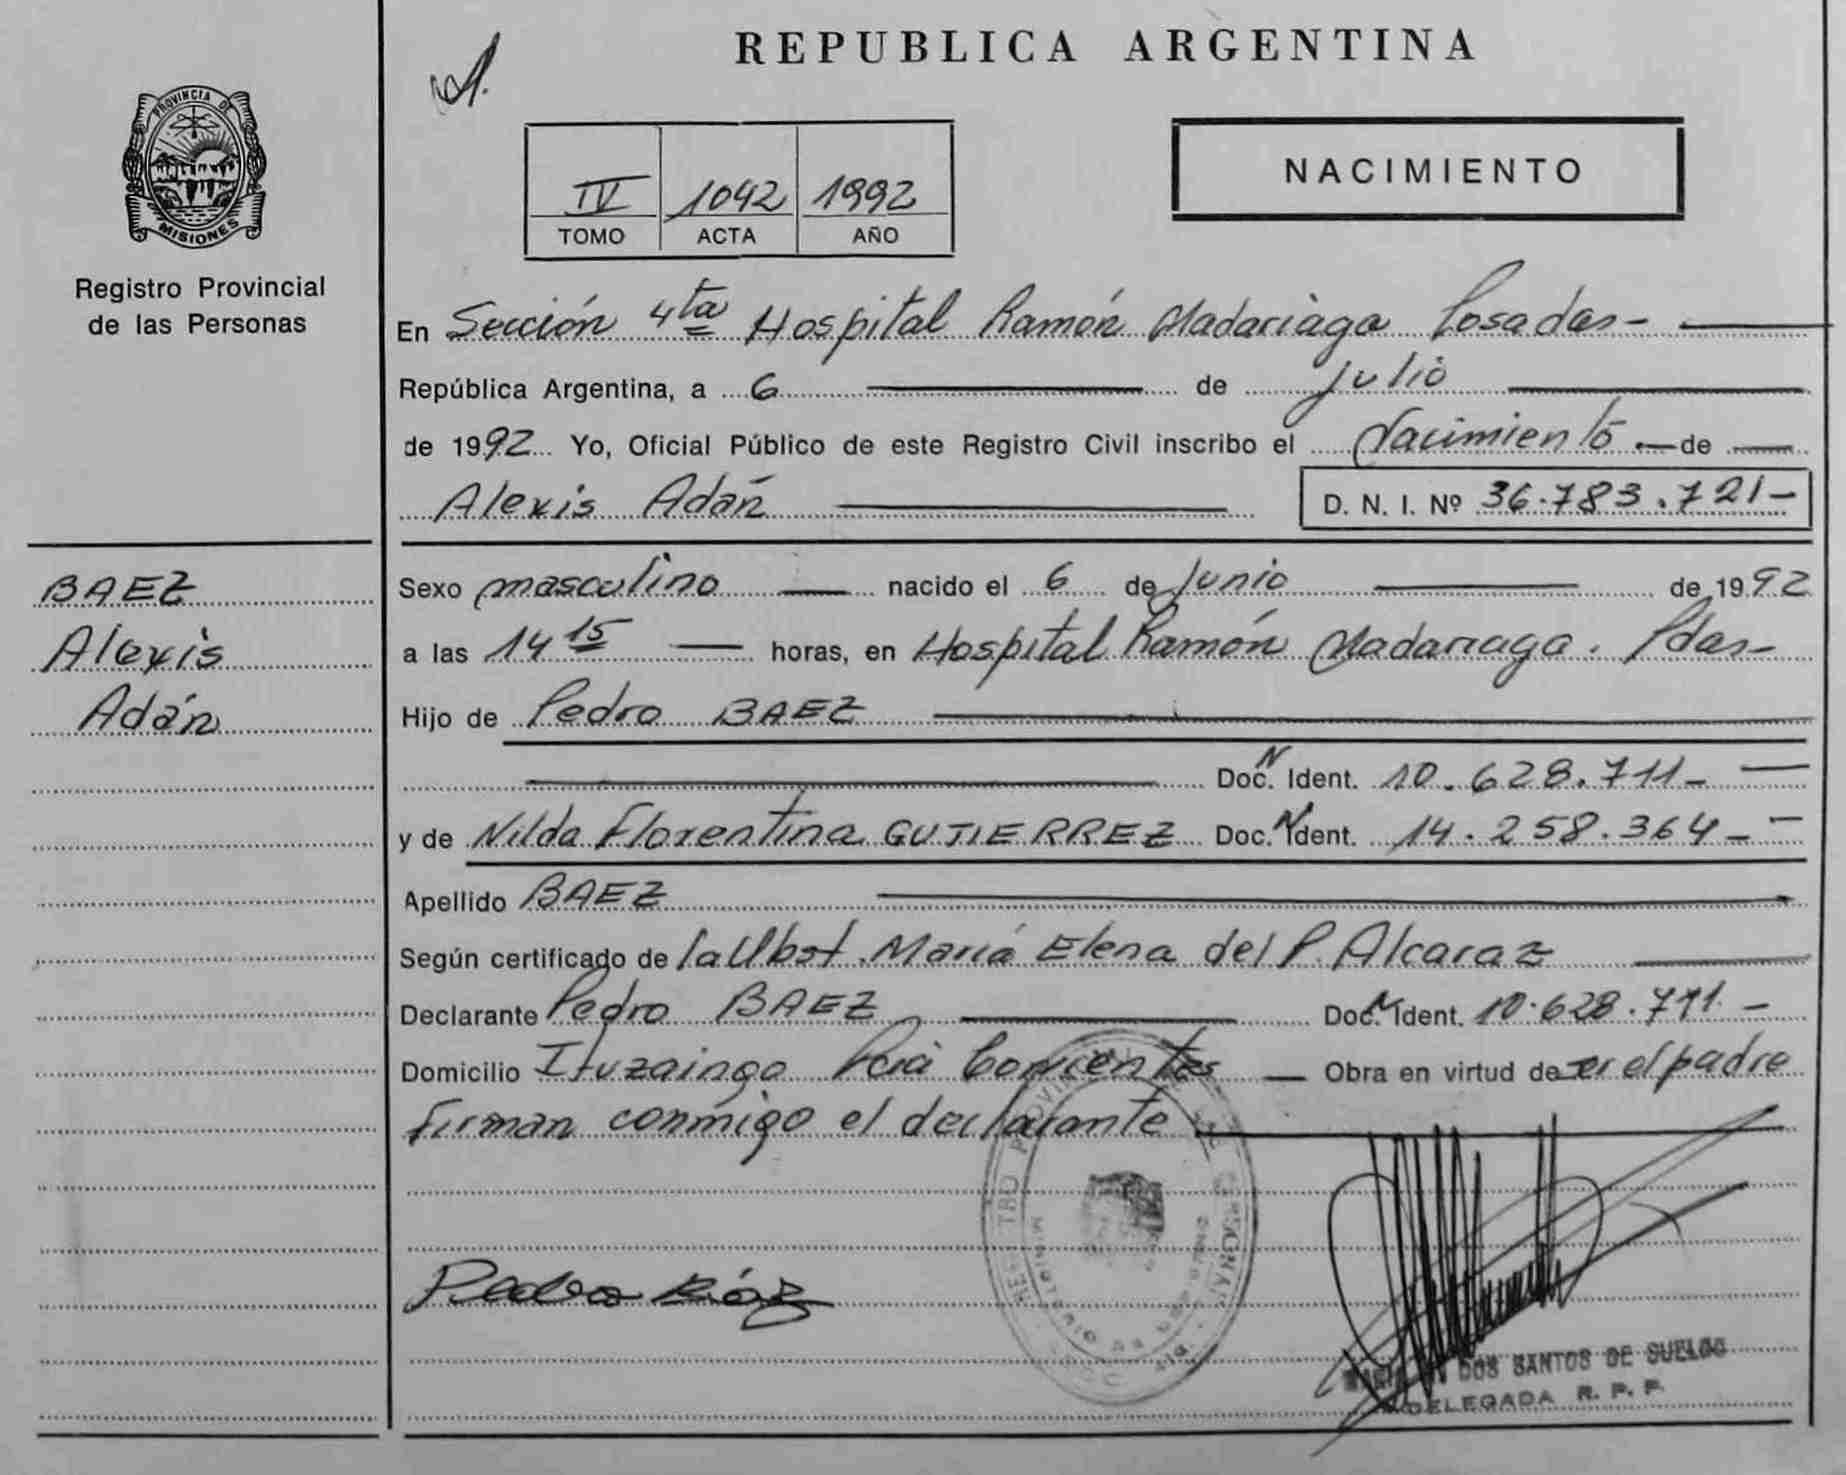 REPUBLICA ARGENTINA
PROVINCIA DE
MISIONES
Registro Provincial
de las Personas
IV 1042 1992
TOMO ACTA AÑO
NACIMIENTO
En Sección 4ta Hospital Ramón Madariaga Posadas-
República Argentina, a 6 de Julio
de 1992 Yo, Oficial Público de este Registro Civil inscribo el Nacimiento de
Alexis Adán D. N. I. Nº 36.783.721-
BAEZ
Alexis
Adán
Sexo masculino nacido el 6 de Junio de 1992
a las 14 15 horas, en Hospital Ramón Madariaga. Pdas-
Hijo de Pedro BAEZ
Doc. N Ident. 10.628.711-
y de Nilda Florentina GUTIERREZ Doc. N Ident. 14.258.364-
Apellido BAEZ
Según certificado de la Obst. María Elena del P. Alcaraz
Declarante Pedro BAEZ Doc. N Ident. 10.628.711-
Domicilio Ituzaingo Pcia Corrientes Obra en virtud de ser el padre
Firman conmigo el declarante
Pedro Báez
DOS SANTOS DE SUELDO
DELEGADA R. P. P.